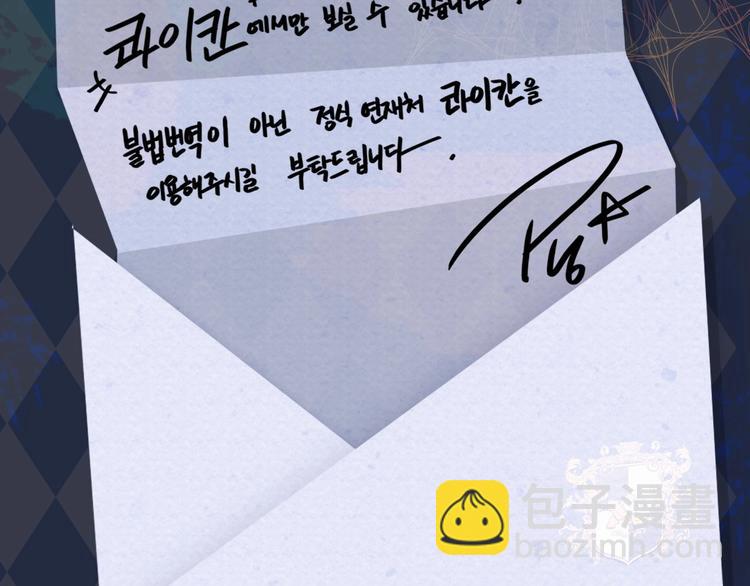 콰이칸에서만 보실 수 있습니다
불법번역이 아닌 정식 연재처 콰이칸을
이용해주시길 부탁드립니다.
包子漫畫
baozimh.com